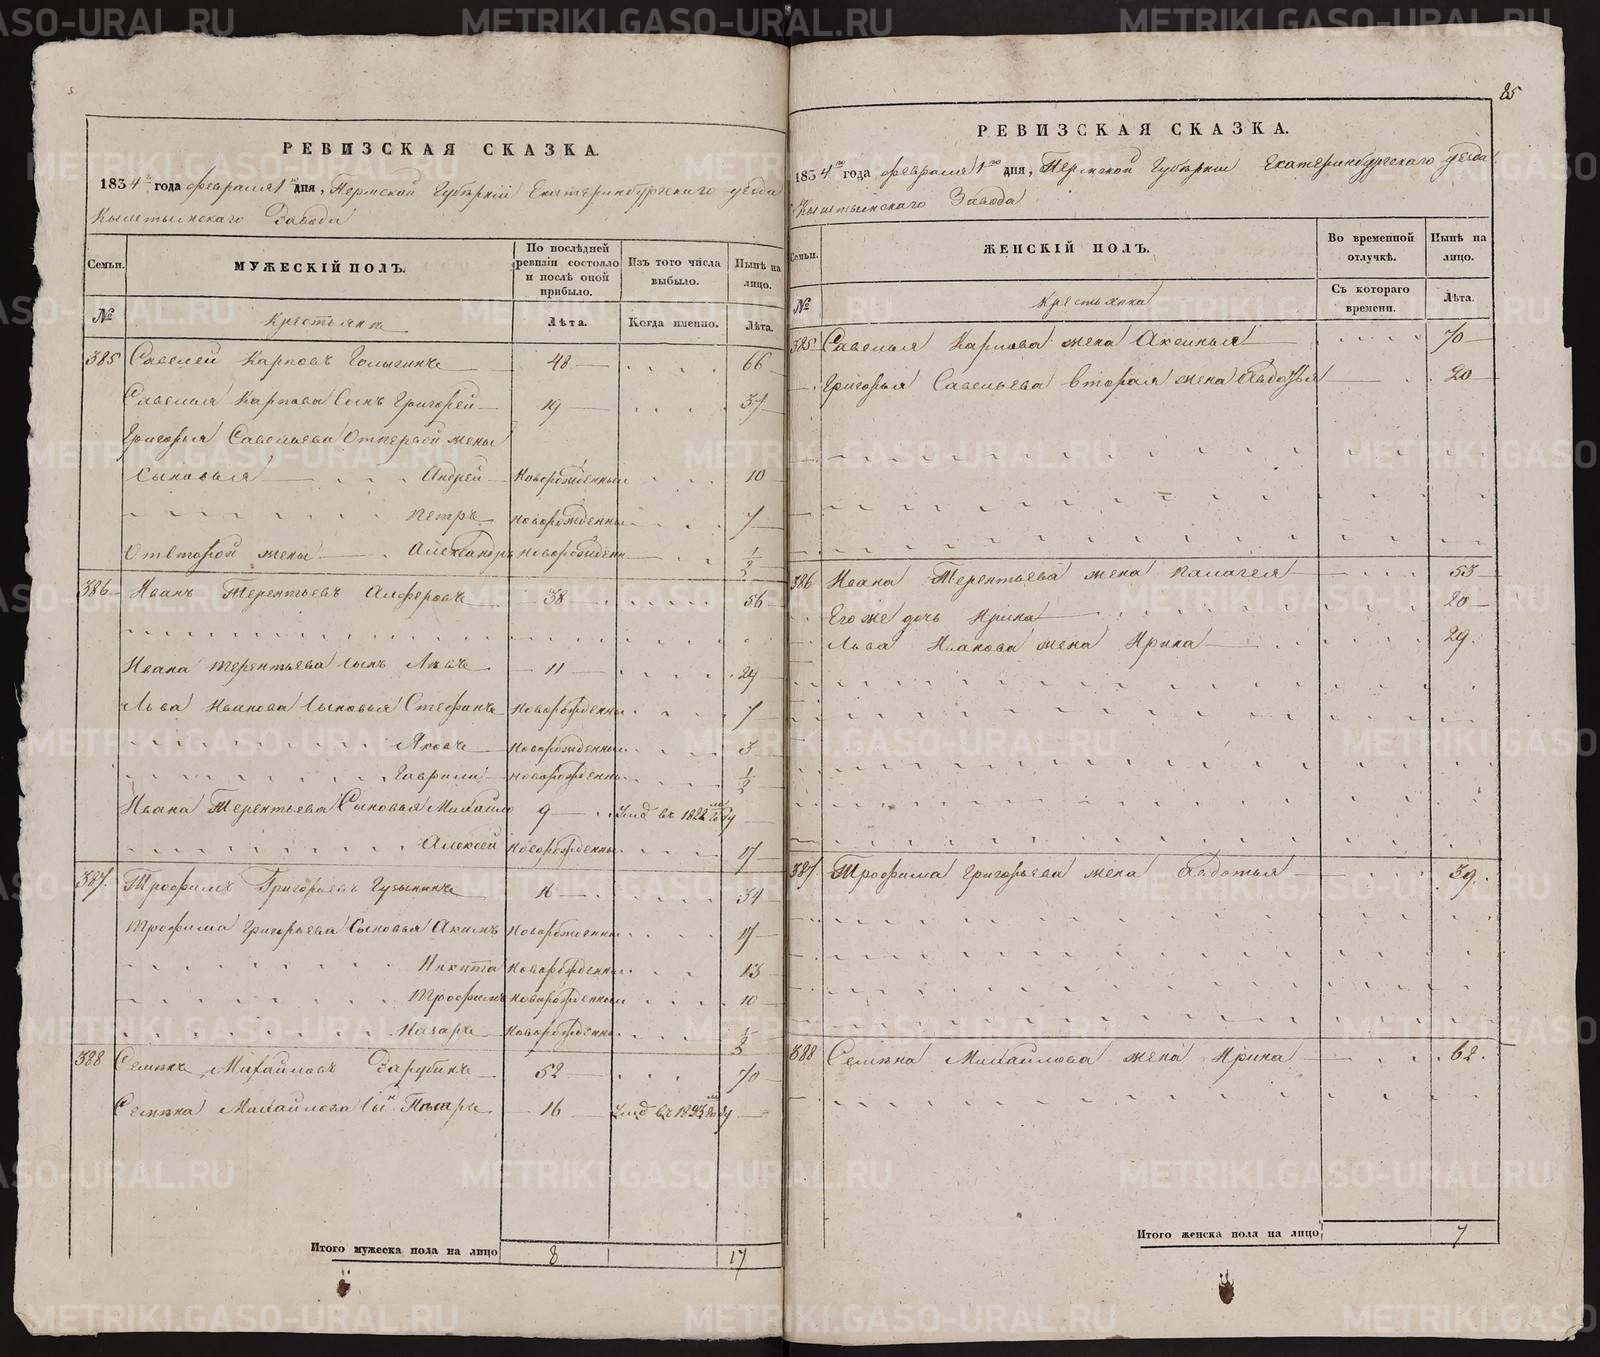 РЕВИЗСКАЯ СКАЗКА.
1834 года февраля 1 дня, Пермской Губернии Екатеринбургскаго уезда
Кыштымскаго Завода
Семьи. МУЖЕСКІЙ ПОЛЪ. По послѣдней ревизіи состояло и послѣ оной прибыло. Изъ того числа выбыло. Нынѣ на лицо.
№ Крестьяне Лѣта. Когда именно. Лѣта.
385 Савелей Карповъ 48 66
Савелья Карпова Сынъ Григорей 19 37
Григорья Савельева Отпервой жены
сыновья Андрей Новорожденный 10
Петръ новорожденны 7
Отвторой жены Александръ новорожден 1/2
386 Иванъ Терентьевъ Алферовъ 38 56
Ивана терентьева сынъ Львъ 11 29
Льва Иванова Сыновья Стефанъ Новорожденны 7
Яковъ Новорожденны 3
Гаврила новорожденны 1/2
Ивана Терентьева Сыновья Михайло 9 Умр въ 1822 году
Алексей новорожденны 17
387 Трофимъ Григорьевъ 16 34
Трофима Григорьева Сыновья Акимъ Новорожденны 17
Никита Новорожденны 13
Трофимъ новорожденны 10
Назаръ Новорожденны 1/2
388 Семенъ Михайловъ Зарубинъ 52 70
Семена Михайлова Сынъ 16 Умр въ году
Итого мужеска пола на лицо 8 17
85
РЕВИЗСКАЯ СКАЗКА.
1834 года февраля 1 дня, Пермской Губерніи Екатеринбургскаго уезда
Кыштымскаго Завода
Семьи. ЖЕНСКІЙ ПОЛЪ. Во временной отлучкѣ. Нынѣ на лицо.
№ Крестьянка Съ котораго времени. Лѣта.
385 Савелья Карпова жена Аксинья 70
Григорья Савельева вторая жена Авдотья 20
386 Ивана Терентьева жена Палагея 53
Егоже дочь Ирина 20
Льва Иванова жена Ирина 29
387 Трофима Григорьева жена Авдотья 39
388 Семена Михайлова жена Ирина 62
Итого женска пола на лицо 7
METRIKI.GASO-URAL.RU